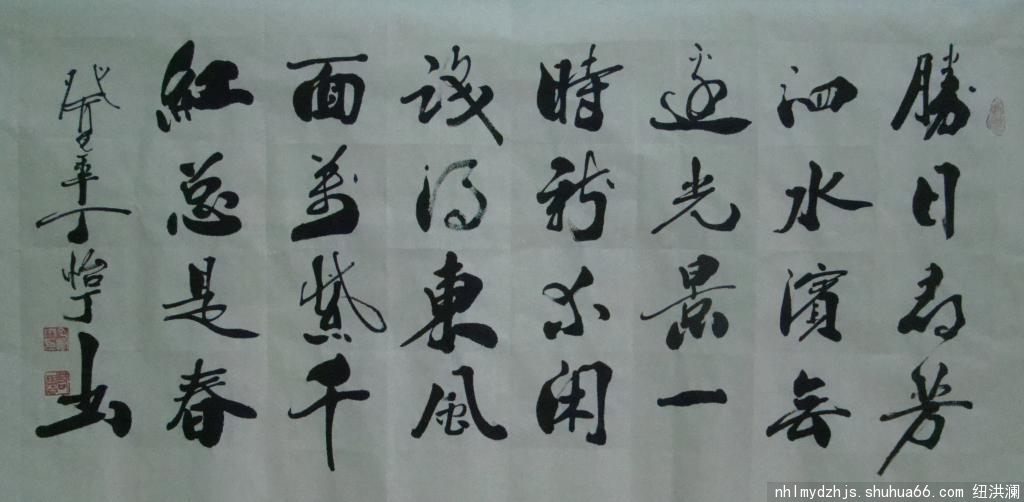 勝日尋芳
泗水濱無
邊光景一
時新等閑
識得東風
面萬紫千
紅总是春
年丁怡书
nhlmydzhjs.shuhua66.com 纽洪澜